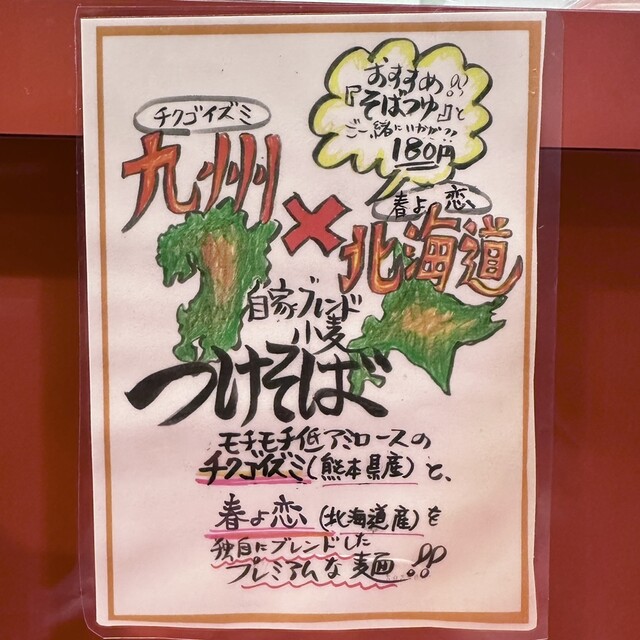 おすすめ!!
『そばつゆ』と
ご一緒にいかが?!
180円
チクゴイズミ
九州
×
春よ恋
北海道
自家ブレンド
小麦
つけそば
モチモチ低アミロースの
チクゴイズミ(熊本県産)と、
春よ恋(北海道産)を
独自にブレンドした
プレミアムな麺!!